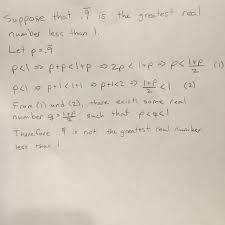 Suppose that .9̅ is the greatest real
number less than 1.
Let p = .9̅
p<1 ⇒ p+p<1+p ⇒ 2p < 1+p ⇒ p< (1+p)/2 (1)
p<1 ⇒ p+1<1+1 ⇒ p+1<2 ⇒ (1+p)/2 <1 (2)
From (1) and (2), there exists some real
number q = (1+p)/2 such that p<q<1
Therefore .9̅ is not the greatest real number
less than 1